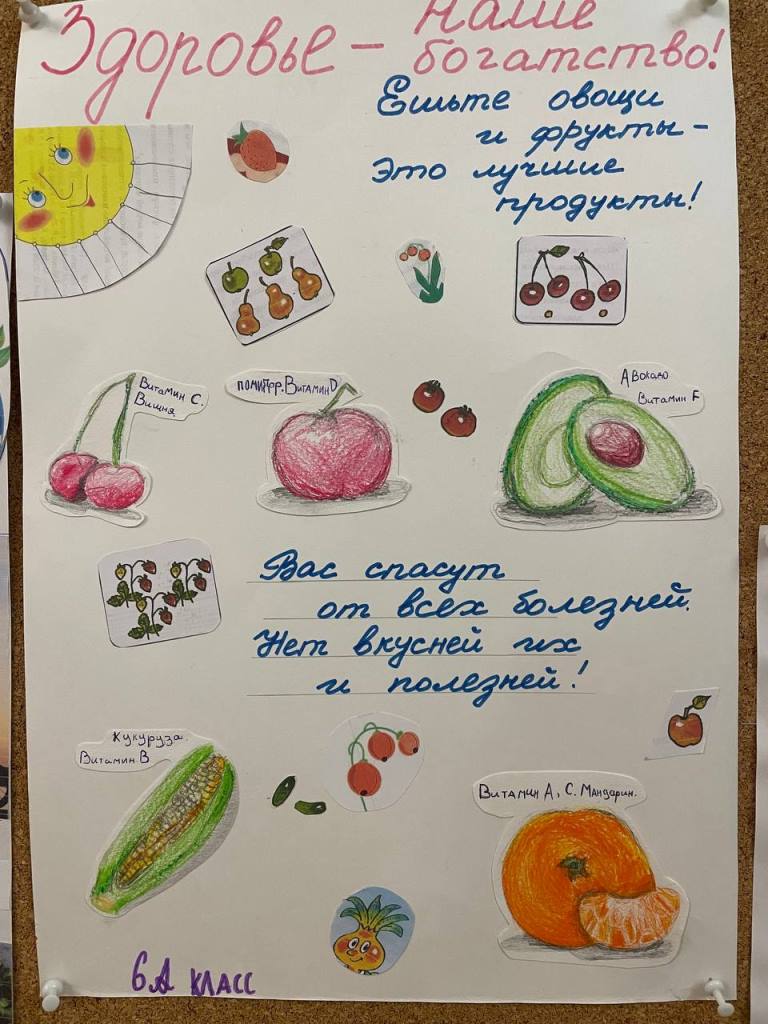 Здоровье - наше
богатство!
Ешьте овощи
и фрукты -
Это лучшие
продукты!
Витамин С.
Вишня
помидор. Витамин D
Авокадо
Витамин F
Вас спасут
от всех болезней.
Нет вкусней их
и полезней!
Кукуруза.
Витамин В
Витамин А, С. Мандарин.
6А класс